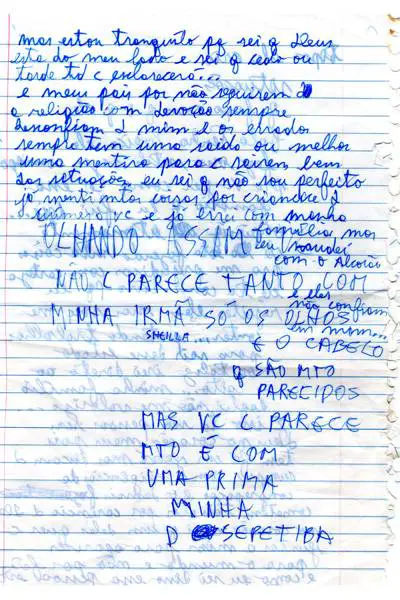 mas estou tranquilo pq sei q Deus
esta do meu lado e sei q cedo ou
tarde td c esclarecerá...
e meus pais por não seguirem
a religião com devoção sempre
desconfiam d mim e os errados
sempre tem uma saida ou melhor
uma mentira para c sairem bem
das situações, eu sei q não sou perfeito
já menti mtas coisas por criancice
vc se já errei com minha
família mas
eu mudei
com o Alcorão
e eles
não confiam
em mim...
OLHANDO SSIM
NÃO C PARECE TANTO COM
MINHA IRMÃ SÓ OS OLHOS
SHEILLA...
E O CABELO
q SÃO MTO
PARECIDOS
MAS VC C PARECE
MTO É COM
UMA PRIMA
MINHA
D SEPETIBA